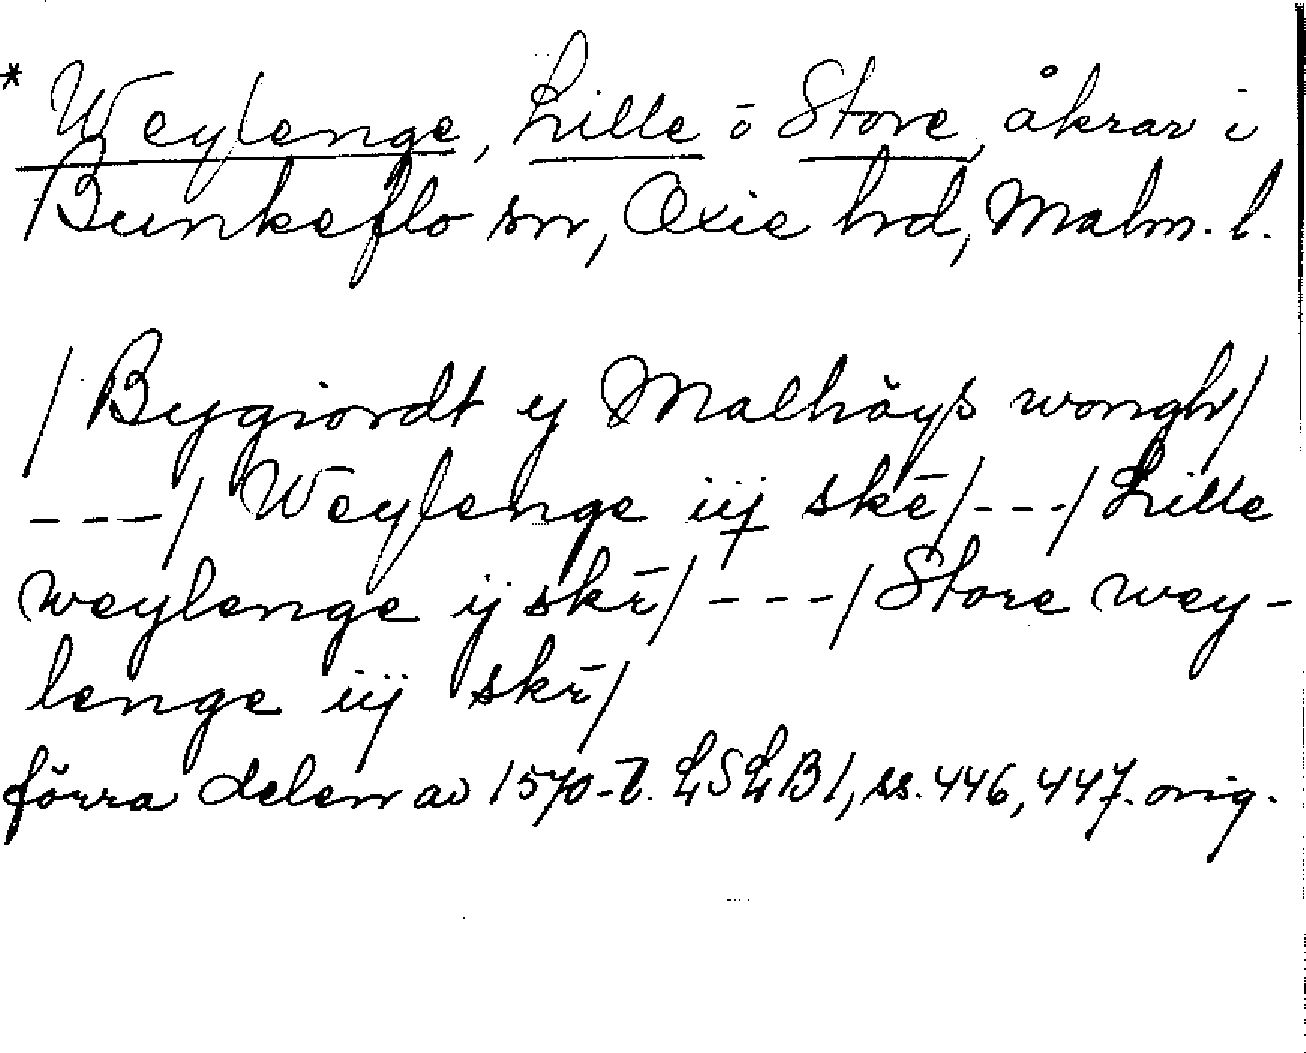 * Weylenge, Lille ō Store, åkrar i
Bunkeflo sn, Oxie hd, Malm. l.
/ Bygiordt y Malhöys wongh/
---/ Weylenge iij skē/---/ Lille
weylenge ij skr̄/ ---/ Store wey-
lenge iij skr̄/
förra delen av 1570-t. LSLB1, ss. 446, 447. orig.